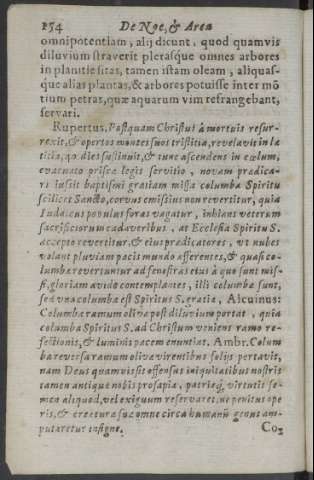 154 De Noe, & Arca
omnipotentiam, alij dicunt, quod quamvis
diluvium straverit plerasque omnes arbores
in planitie sitas, tamen istam oleam, aliquas-
que alias plantas, & arbores potuisse inter mō
tium petras, quæ aquarum vim refrangebant,
servari.
Rupertus, Postquam Christus à mortuis resur-
rexit, & opertos montes suos tristitia, revelavit in læ
titia, 40. dies sustinuit, & tunc ascendens in cœlum,
evacuato priscæ legis servitio, novam prædica-
ri iussit baptismi gratiam missa columba Spiritu
scilicet Sancto, corvus emissus non revertitur, quia
Iudaicus populus foras vagatur, inhians veterum
sacrificiorum cadaveribus, at Ecclesia Spiritu S.
accepto revertitur, & eius prædicatores, ut nubes
volant pluviam pacis mundo afferentes, & quasi co-
lumbæ revertuntur ad fenestras eius à quo sunt mis-
si, gloriam avide contemplantes, illi columbæ sunt,
sed una columba est Spiritus S. gratia, Alcuinus:
Columba ramum oliva post diluvium portat, quia
columba Spiritus S. ad Christum veniens ramo re-
fectionis, & luminis pacem enuntiat. Ambr. Colum
ba reversa ramum oliva virentibus folijs portavit,
nam Deus quamvis sit offensus iniquitatibus nostris
tamen antiquæ nobis prosapiæ, patrisq́; virtutis se-
men aliquod, vel exiguum reservaret, ne penitus ope
ris, & creaturæ suæ omne circa humanū genus am-
putaretur insigne.
Co2